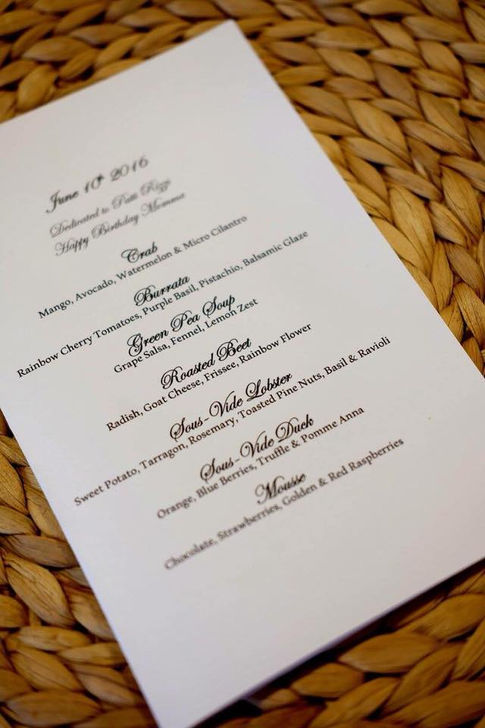 June 10th 2016
Dedicated to Patti Rizzi
Happy Birthday Momma
Crab
Mango, Avocado, Watermelon & Micro Cilantro
Burrata
Rainbow Cherry Tomatoes, Purple Basil, Pistachio, Balsamic Glaze
Green Pea Soup
Grape Salsa, Fennel, Lemon Zest
Roasted Beet
Radish, Goat Cheese, Frissee, Rainbow Flower
Sous-Vide Lobster
Sweet Potato, Tarragon, Rosemary, Toasted Pine Nuts, Basil & Ravioli
Sous-Vide Duck
Orange, Blue Berries, Truffle & Pomme Anna
Mousse
Chocolate, Strawberries, Golden & Red Raspberries